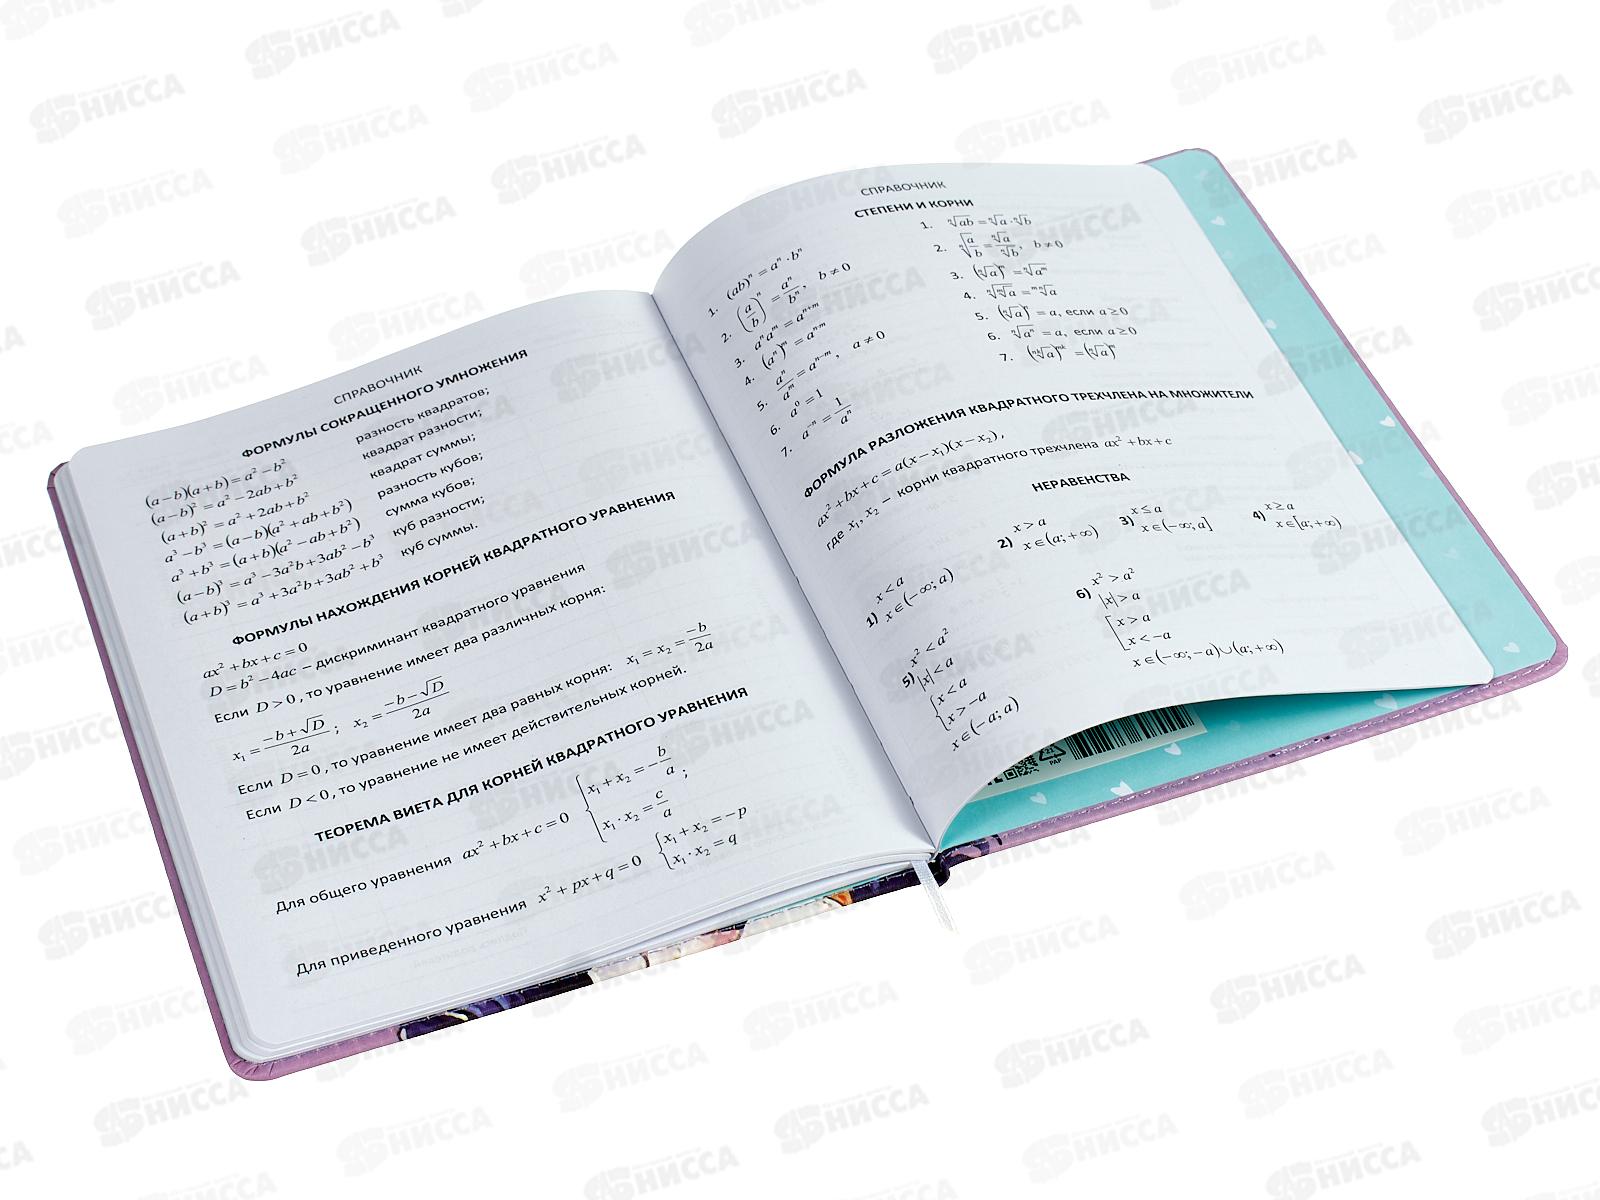 СПРАВОЧНИК
ФОРМУЛЫ СОКРАЩЕННОГО УМНОЖЕНИЯ
(a−b)(a+b)=a²−b² разность квадратов;
(a−b)²=a²−2ab+b² квадрат разности;
(a+b)²=a²+2ab+b² квадрат суммы;
a³−b³=(a−b)(a²+ab+b²) разность кубов;
a³+b³=(a+b)(a²−ab+b²) сумма кубов;
(a−b)³=a³−3a²b+3ab²−b³ куб разности;
(a+b)³=a³+3a²b+3ab²+b³ куб суммы.
ФОРМУЛЫ НАХОЖДЕНИЯ КОРНЕЙ КВАДРАТНОГО УРАВНЕНИЯ
ax²+bx+c=0
D=b²−4ac – дискриминант квадратного уравнения
Если D>0, то уравнение имеет два различных корня:
x₁=(−b+√D)/2a; x₂=(−b−√D)/2a
Если D=0, то уравнение имеет два равных корня: x₁=x₂=−b/2a
Если D<0, то уравнение не имеет действительных корней.
ТЕОРЕМА ВИЕТА ДЛЯ КОРНЕЙ КВАДРАТНОГО УРАВНЕНИЯ
Для общего уравнения ax²+bx+c=0 {x₁+x₂=−b/a
x₁·x₂=c/a ;
Для приведенного уравнения x²+px+q=0 {x₁+x₂=−p
x₁·x₂=q
СПРАВОЧНИК
СТЕПЕНИ И КОРНИ
1. (ab)ⁿ=aⁿ·bⁿ
2. (a/b)ⁿ=aⁿ/bⁿ, b≠0
3. aⁿaᵐ=aⁿ⁺ᵐ
4. (aⁿ)ᵐ=aⁿ·ᵐ
5. aⁿ/aᵐ=aⁿ⁻ᵐ, a≠0
6. a⁰=1
7. a⁻ⁿ=1/aⁿ
1. ⁿ√ab=ⁿ√a·ⁿ√b
2. ⁿ√(a/b)=ⁿ√a/ⁿ√b, b≠0
3. (ⁿ√a)ᵐ=ⁿ√aᵐ
4. ⁿ√ᵐ√a=ᵐⁿ√a
5. (ⁿ√a)ⁿ=a, если a≥0
6. ⁿ√aⁿ=a, если a≥0
7. (ⁿᵏ√a)ᵐᵏ=(ⁿ√a)ᵐ
ФОРМУЛА РАЗЛОЖЕНИЯ КВАДРАТНОГО ТРЕХЧЛЕНА НА МНОЖИТЕЛИ
ax²+bx+c=a(x−x₁)(x−x₂),
где x₁, x₂ – корни квадратного трехчлена ax²+bx+c
НЕРАВЕНСТВА
1) x<a
x∈(−∞; a)
2) x>a
x∈(a;+∞)
3) x≤a
x∈(−∞;a]
4) x≥a
x∈[a;+∞)
5) x²<a²
|x|<a
{x<a
x>−a
x∈(−a; a)
6) x²>a²
|x|>a
[x>a
x<−a
x∈(−∞;−a)∪(a;+∞)
21
PAP
НИССА